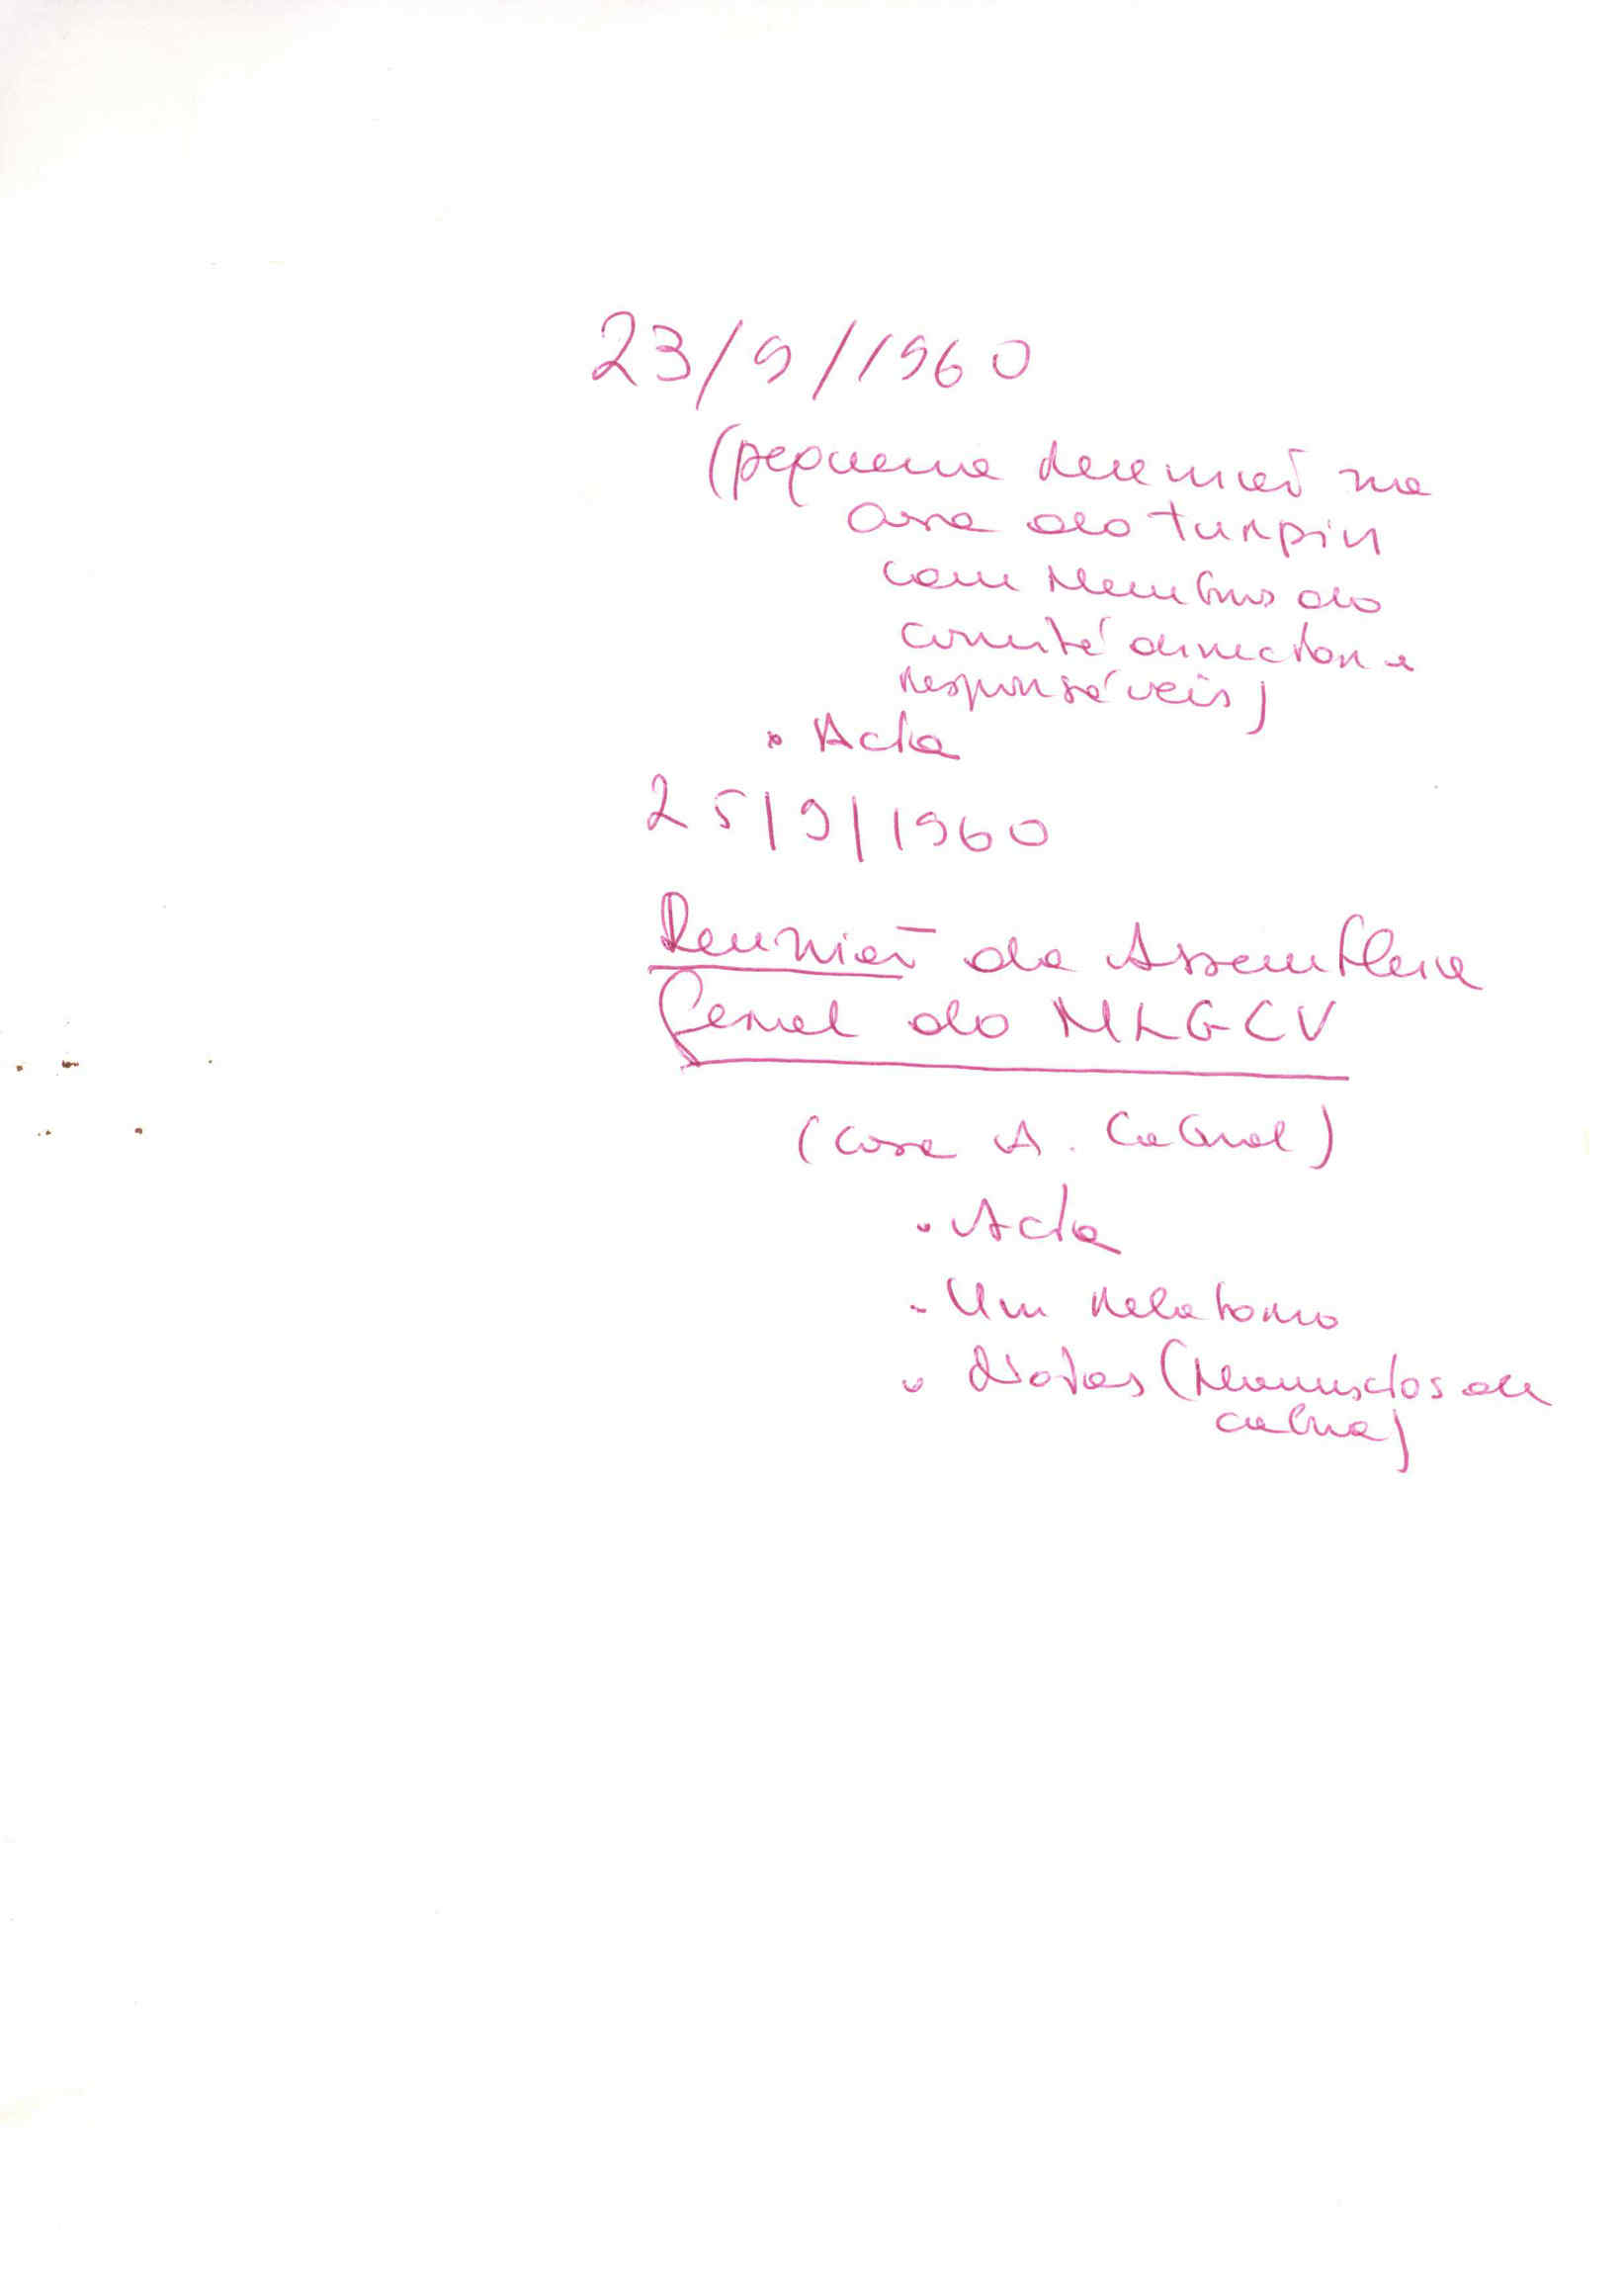 23/9/1960
(pequena reunião na
casa do Turpin
com membros do
comité director e
responsáveis)
• Acta
25/9/1960
Reunião da Assembleia
Geral do MLGCV
(casa A. Cabral)
• Acta
- Um relatorio
• Notas (Manusctos de
cabral)